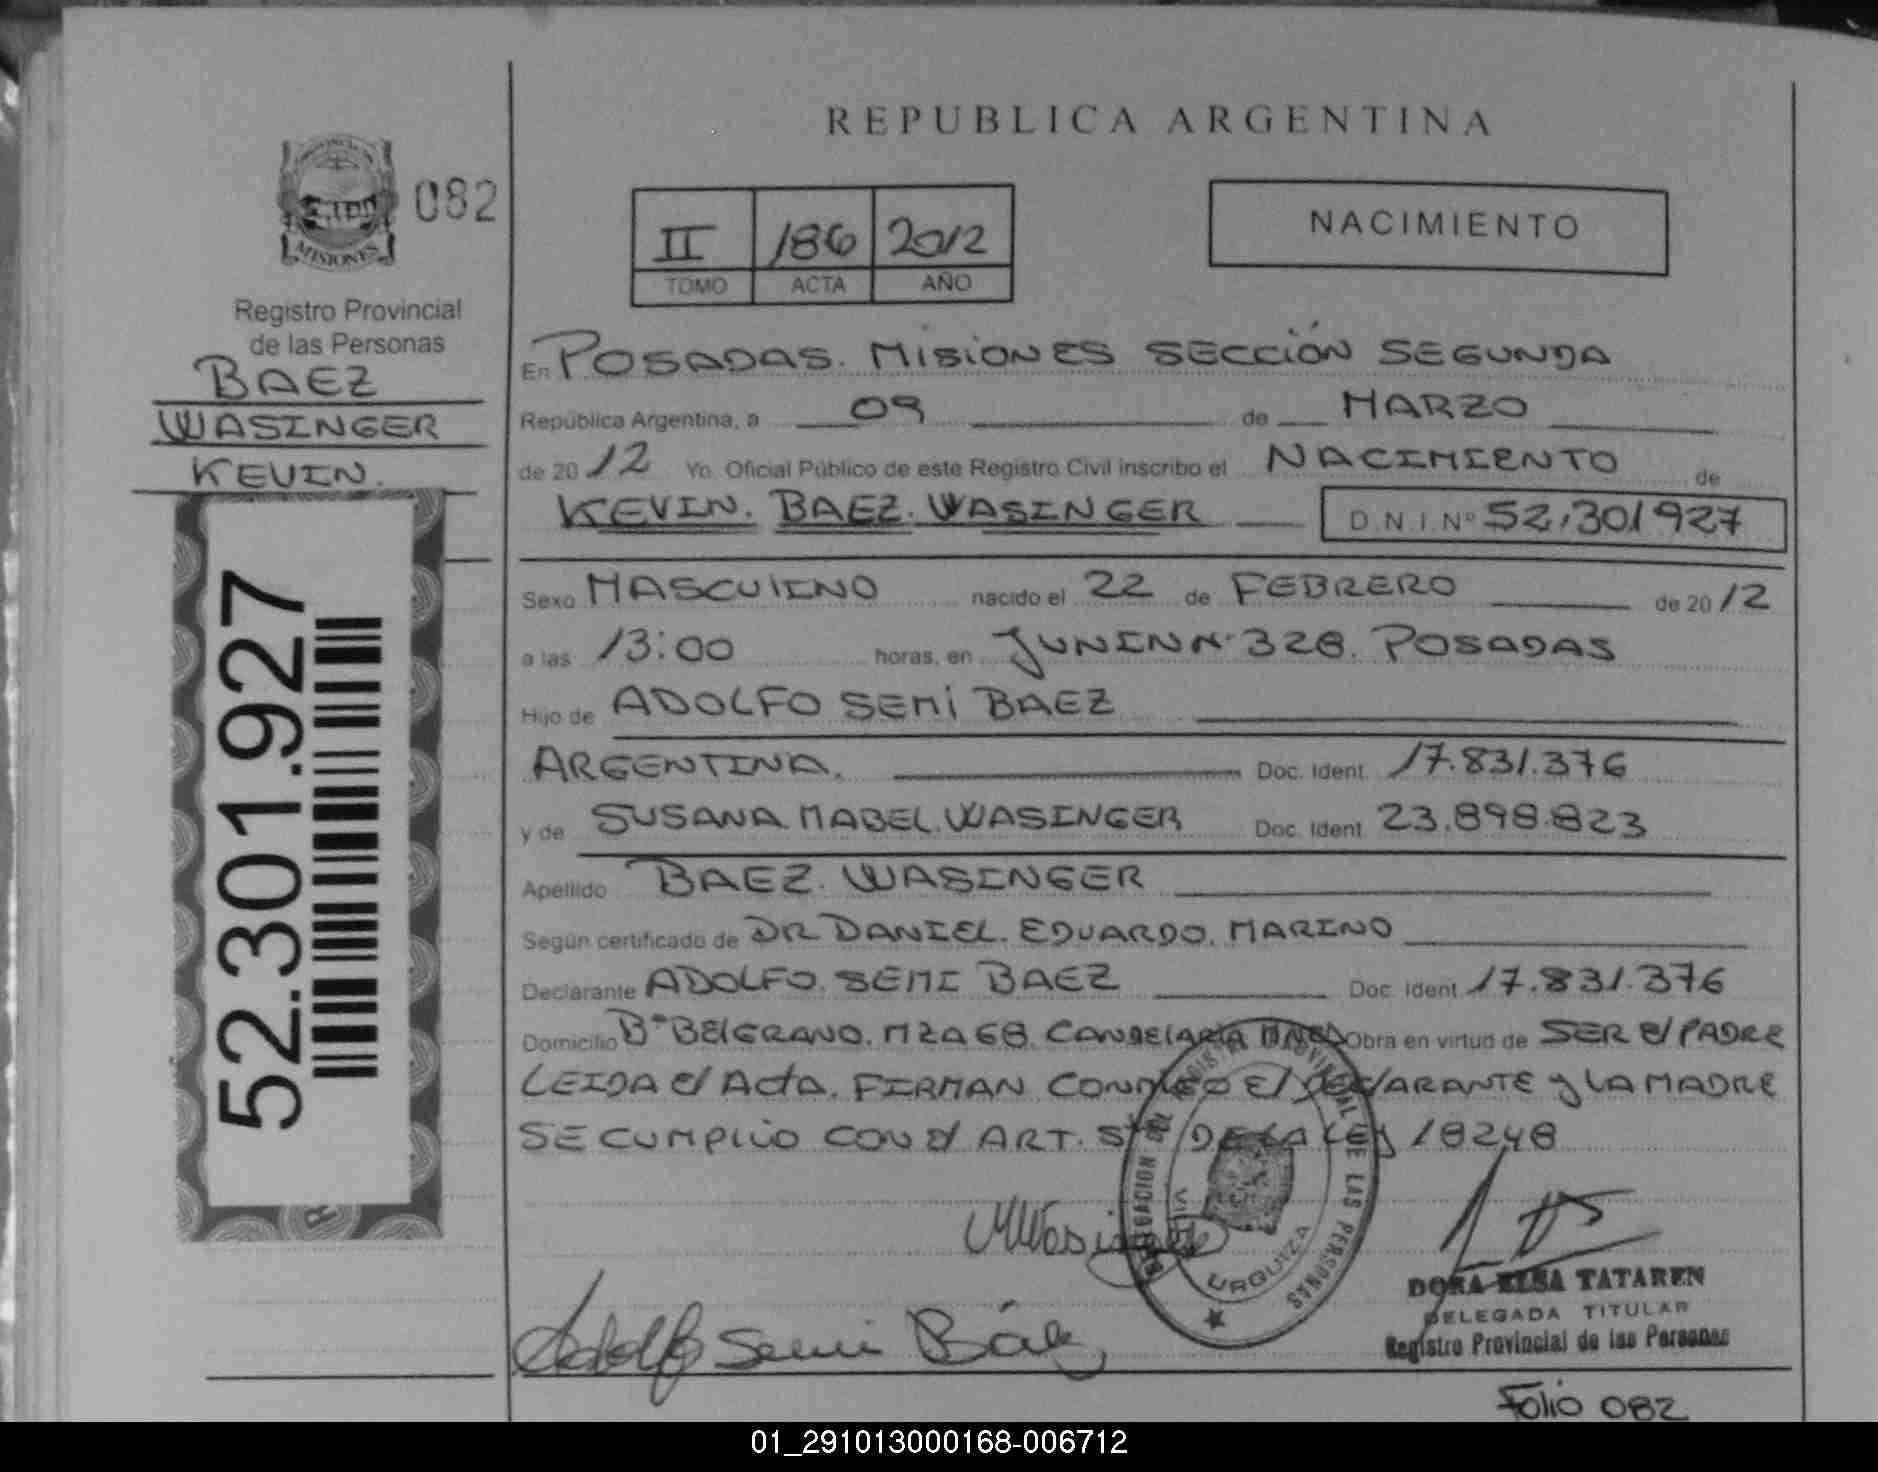 REPUBLICA ARGENTINA
PROVINCIA DE
MISIONES
082
Registro Provincial
de las Personas
BAEZ
WASINGER
KEVIN.
52.301.927
II 186 2012
TOMO ACTA AÑO
NACIMIENTO
En POSADAS. MISIONES SECCIÓN SEGUNDA
República Argentina, a 09 de MARZO
de 2012 Yo. Oficial Público de este Registro Civil inscribo el NACIMIENTO de
KEVIN. BAEZ. WASINGER D.N.I. Nº 52.301927
Sexo MASCULINO nacido el 22 de FEBRERO de 2012
a las 13:00 horas, en JUNIN Nº 328. POSADAS
Hijo de ADOLFO SEMI BAEZ
ARGENTINA. Doc. Ident. 17.831.376
y de SUSANA MABEL WASINGER Doc. Ident. 23.898.823
Apellido BAEZ. WASINGER
Según certificado de DR DANIEL. EDUARDO. MARINO
Declarante ADOLFO. SEMI BAEZ Doc. Ident. 17.831.376
Domicilio Bº BElGRANO. MZA 68. CANDELARIA Obra en virtud de SER el PADRE
LEIDA el Acta. FIRMAN CONMIGO El DEClARANTE y LA MADRE
SE CUMPLIO CON el ART. 5º DE LA LEy 18248
DELEGACION DEL REGISTRO PROVINCIAL DE LAS PERSONAS
VILLA URQUIZA
MWasinger
Adolfo Semi Báez
DORA ELSA TATAREN
DELEGADA TITULAR
Registro Provincial de las Personas
Folio 082
01_291013000168-006712